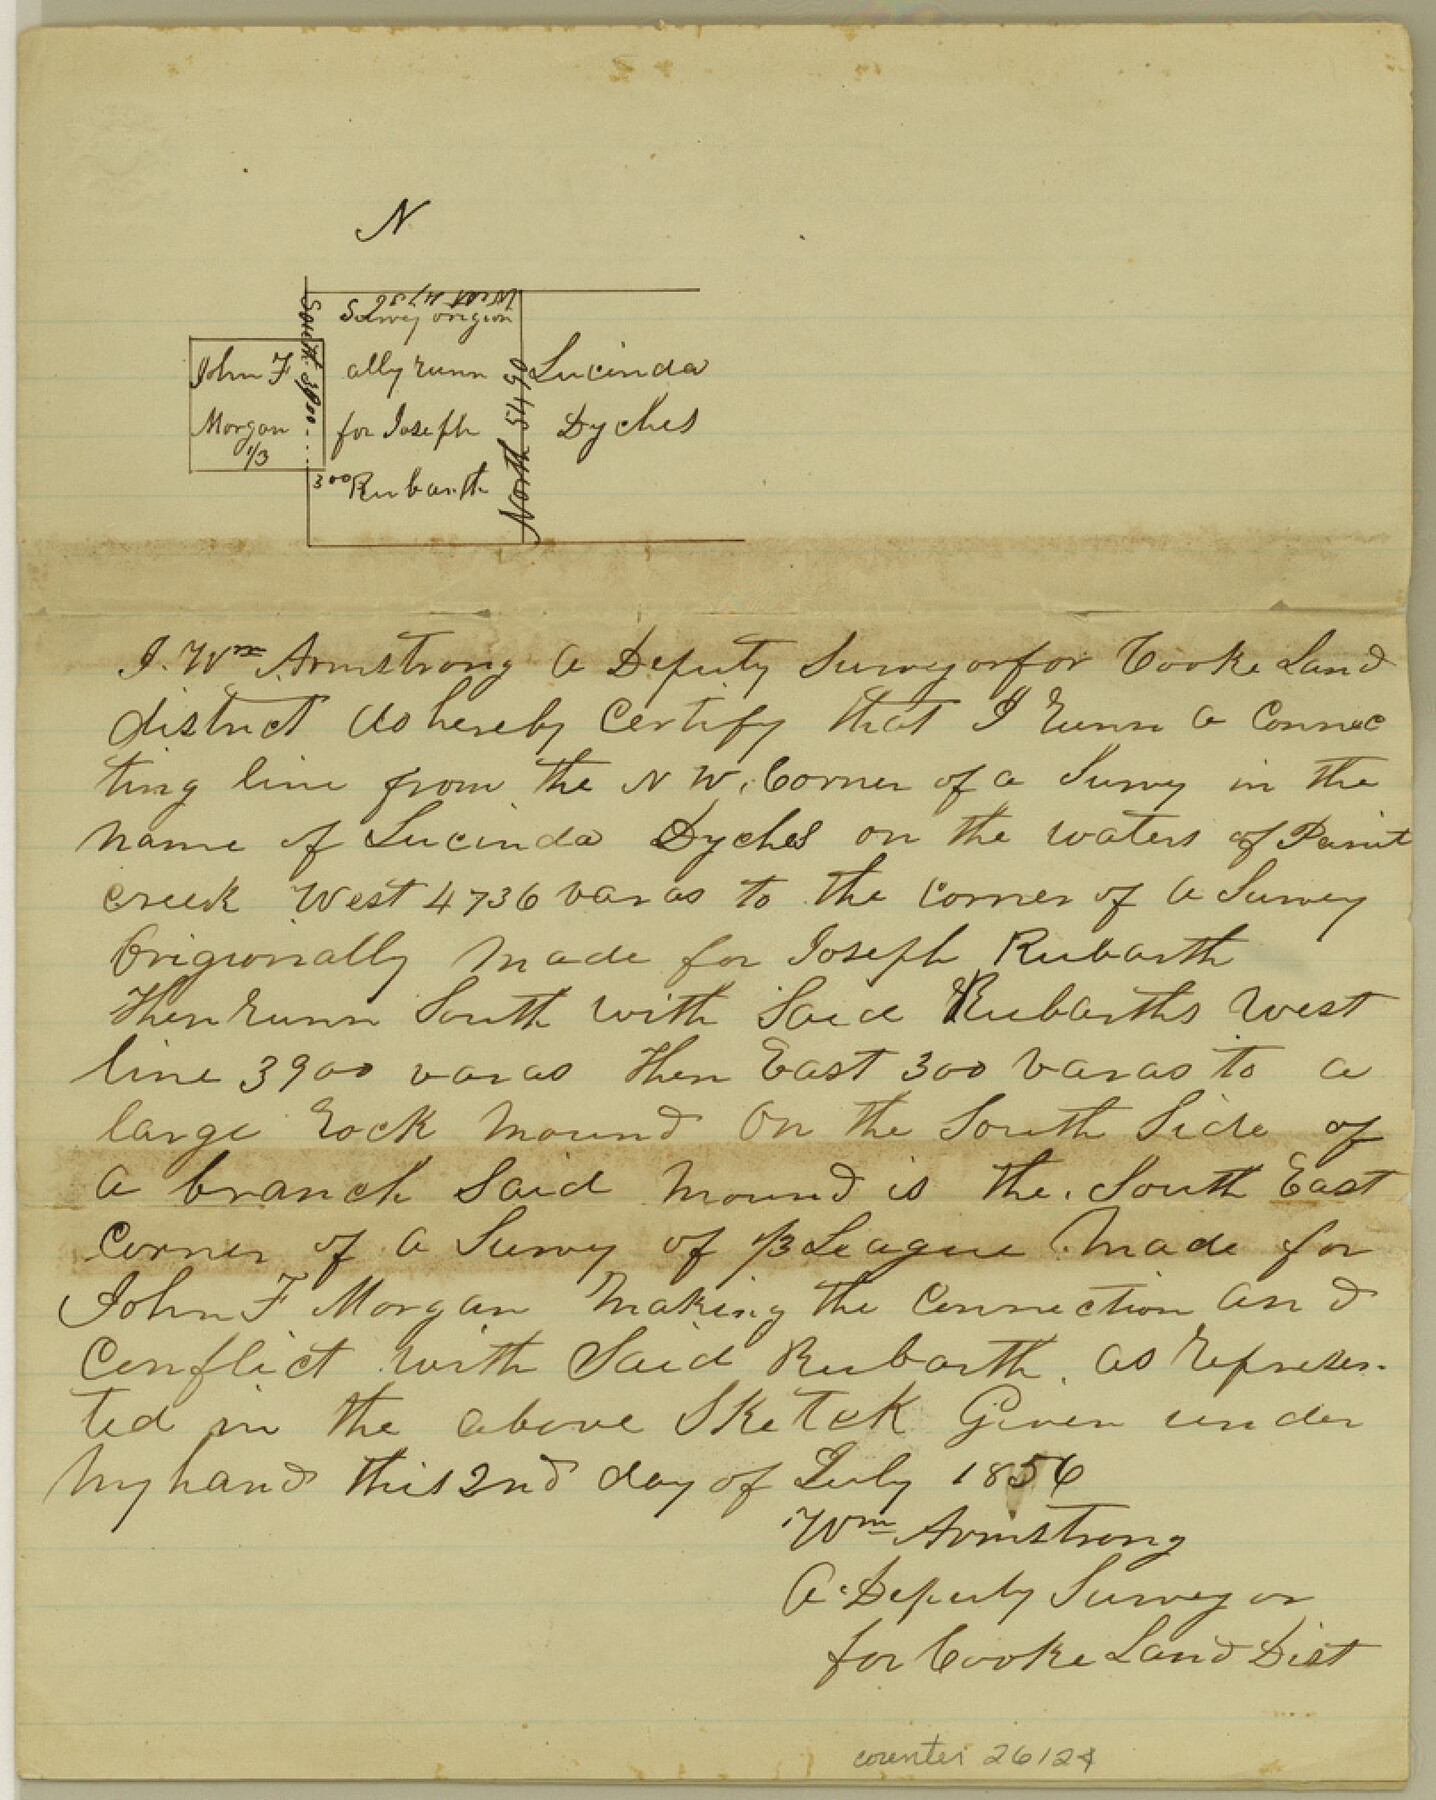 N
West 4736
Survey origion
ally runn
for Joseph
Rubarth
South 3900
300
North 5490
John F
Morgan
1/3
Lucinda
Dyches
I. Wm Armstrong a Deputy Surveyor for Cooke Land
district do hereby Certify that I runn a Connec
ting line from the N W. Corner of a Survey in the
name of Lucinda Dyches on the waters of Paint
creek West 4736 varas to the corner of a Survey
Origionally made for Joseph Rubarth
Then runn South with Said Rubarths West
line 3900 varas then East 300 varas to a
large rock mound On the South Side of
a branch Said mound is the South East
Corner of a Survey of 1/3 League Made for
John F Morgan making the Connection and
Conflict with Said Rubarth as represen-
ted in the above Sketck Given under
my hand this 2nd day of July 1856
Wm Armstrong
A Deputy Surveyor
for Cooke Land Dist
counter 26124